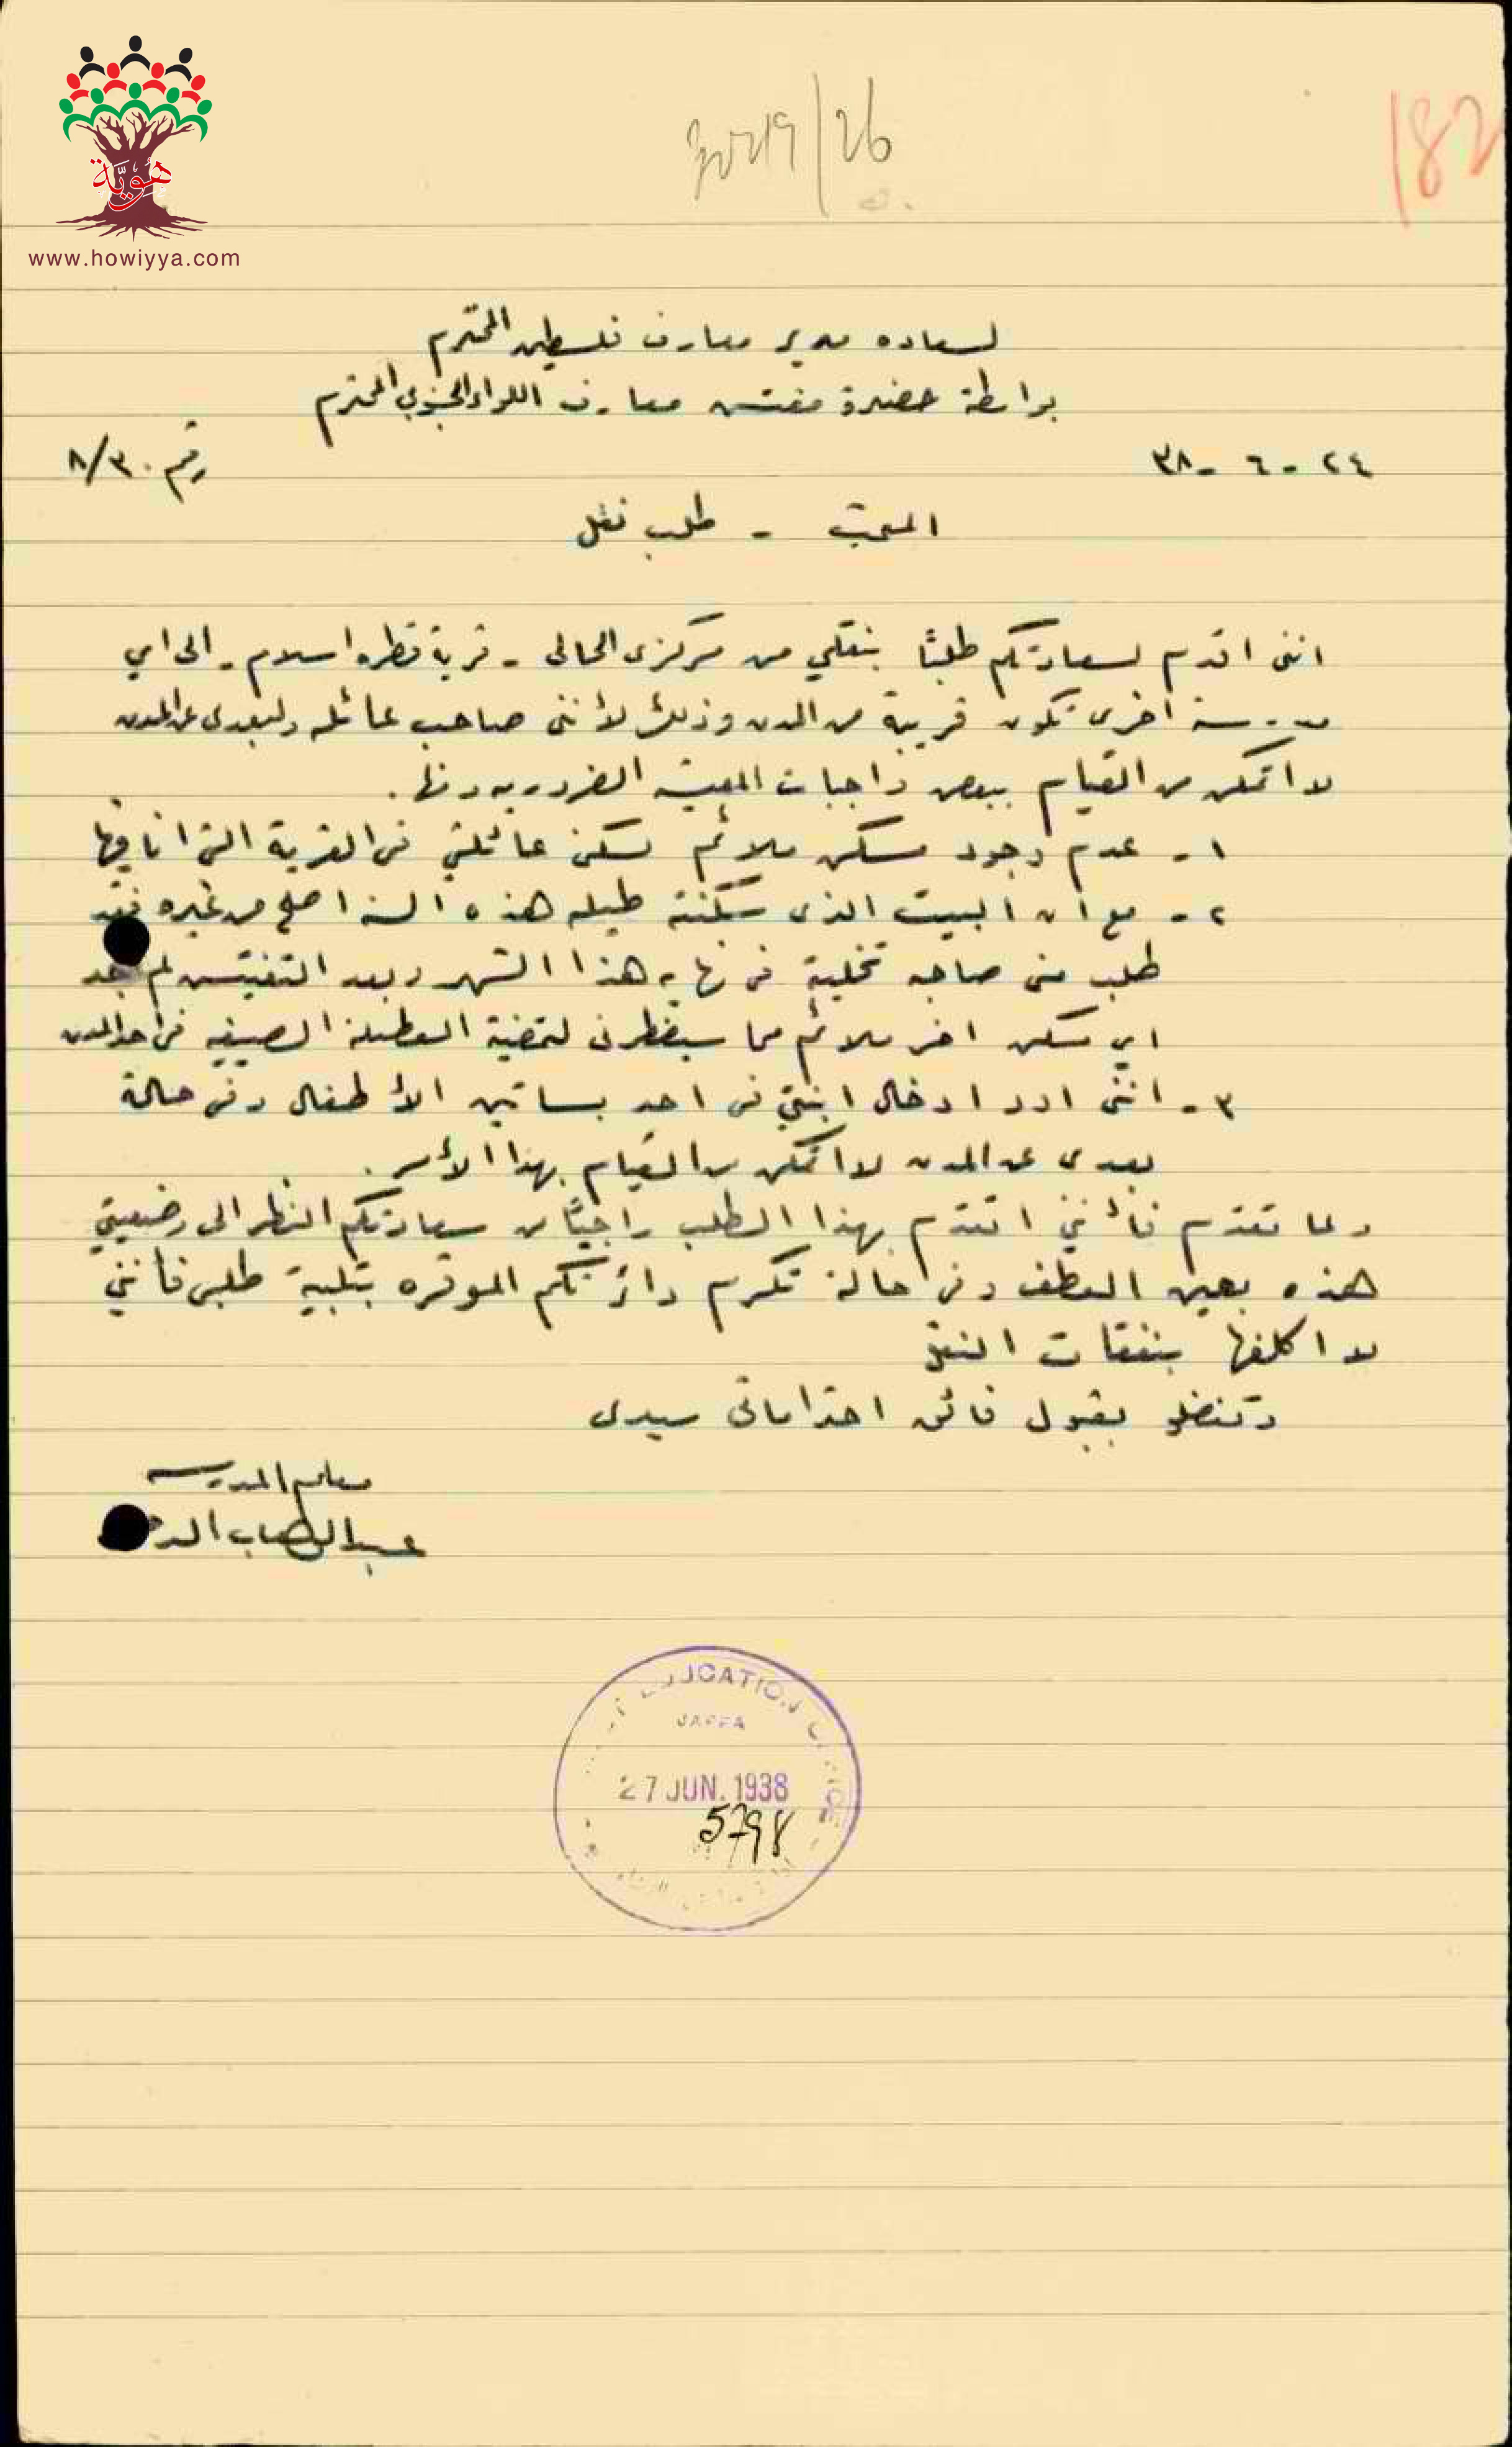 هوية
www.howiyya.com
182
لسعاده مدير معارف فلسطين المحترم
بواسطة حضرة مفتش معارف اللواء الجنوبي المحترم
٢٤ - ٦ - ٣٨
رقم ٨/٣٠
المبحث - طلب نقل
انني اقدم لسعادتكم طلبًا بنقلي من مركزى الحالى - قرية قطره اسلام - الى اي
مدرسة اخرى تكون قريبة من المدن وذلك لأننى صاحب عائله ولبعدى عن المدن
لا اتمكن من القيام ببعض واجبات المعيشه الضروريه ومنها .
١ - عدم وجود مسكن ملائم لسكن عائلتي في القرية التى انا فيها
٢ - مع ان البيت الذى سكنته طيله هذه السنه اصلح من غيره فقد
طلب منى صاحبه تخليته في نهاية هذا الشهر وبعد التفتيش لم اجد
اي مسكن اخر ملائم مما سيضطرنى لتمضية العطلة الصيفيه في احد المدن
٣ - اننى اود ادخال ابنتي في احد بساتين الأطفال وفى حالة
بعدى عن المدن لا اتمكن من القيام بهذا الأمر .
وبما تقدم فأنني اتقدم بهذا الطلب راجيًا من سعادتكم النظر الى وضعيتي
هذه بعين العطف وفى حالة تكرم دائرتكم الموقره بتلبية طلبى فأنني
لا اكلفها بنفقات النقل
وتفضلو بقبول فائق احتراماتى سيدى
معلم المدرسه
عبد الوهاب
EDUCATION OFFICE
JAFFA
27 JUN. 1938
5798